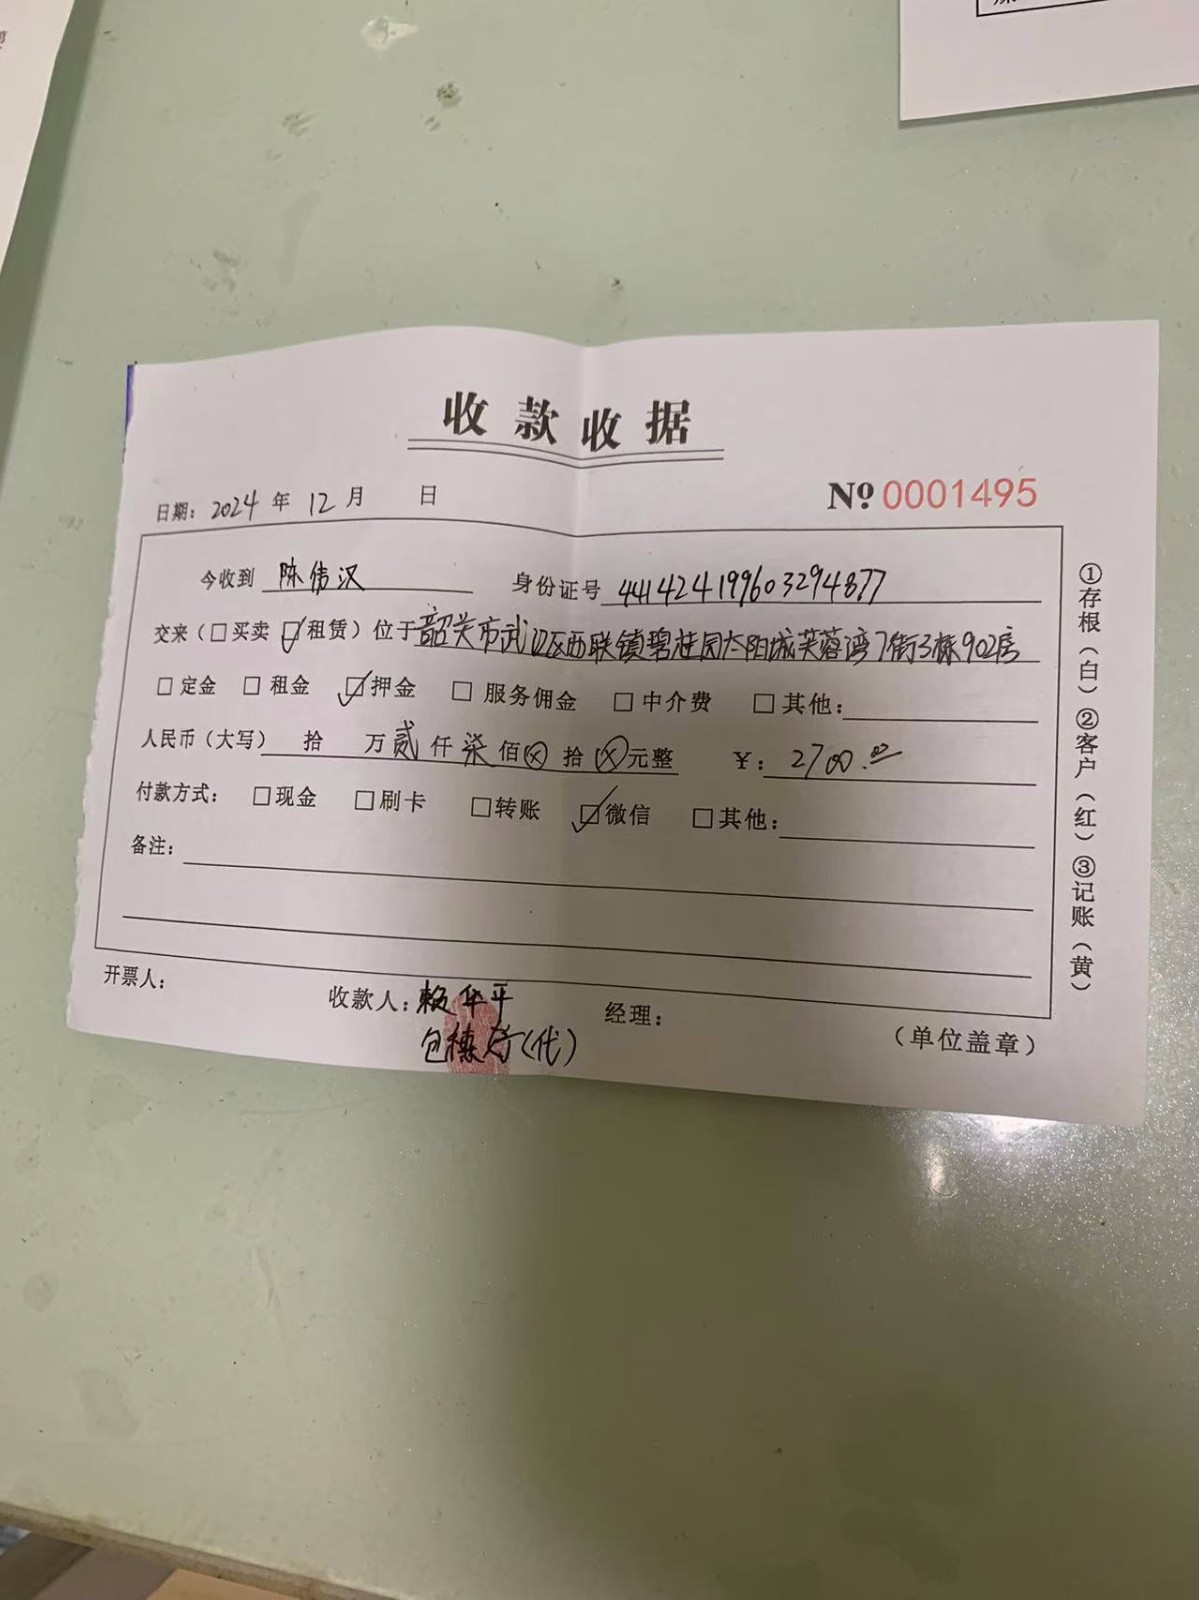 收款收据
日期: 2024 年 12 月 日 № 0001495
今收到 陈伟汉 身份证号 441424199603294877
交来(□买卖 ☑租赁)位于 韶关市武江区西联镇碧桂园太阳城芙蓉湾7街3栋902房
□定金 □租金 ☑押金 □服务佣金 □中介费 □其他:
人民币(大写) 拾 万 贰 仟 柒 佰 ⊗ 拾 ⊗ 元整 ¥: 2700.00
付款方式: □现金 □刷卡 □转账 ☑微信 □其他:
备注:
开票人: 收款人: 赖华平 经理: (单位盖章)
包 (代)
①存根(白)②客户(红)③记账(黄)